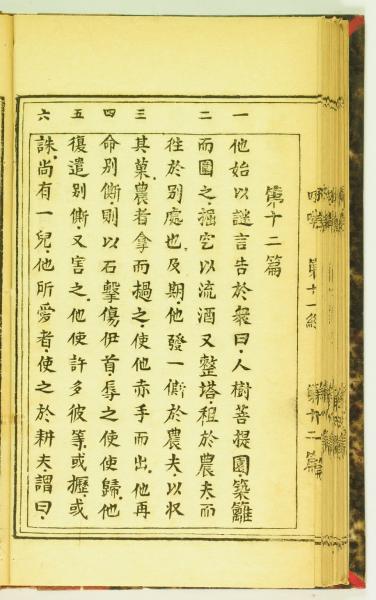 第十二篇
一 他始以謎言告於衆曰.人樹菩提園.築籬
二 而圍之.掘窀以流酒又整塔.租於農夫.而
徃於別處也.及期.他發一厮於農夫.以収
三 其菓.農者拿而撾之.使他赤手而出.他再
四 命別厮則以石擊傷伊首.辱之使使歸.他
五 復遣別厮.又害之.他使許多彼等.或摼.或
六 誅.尚有一兒.他所愛者.使之於耕夫.謂曰.
第十一終
第十二篇